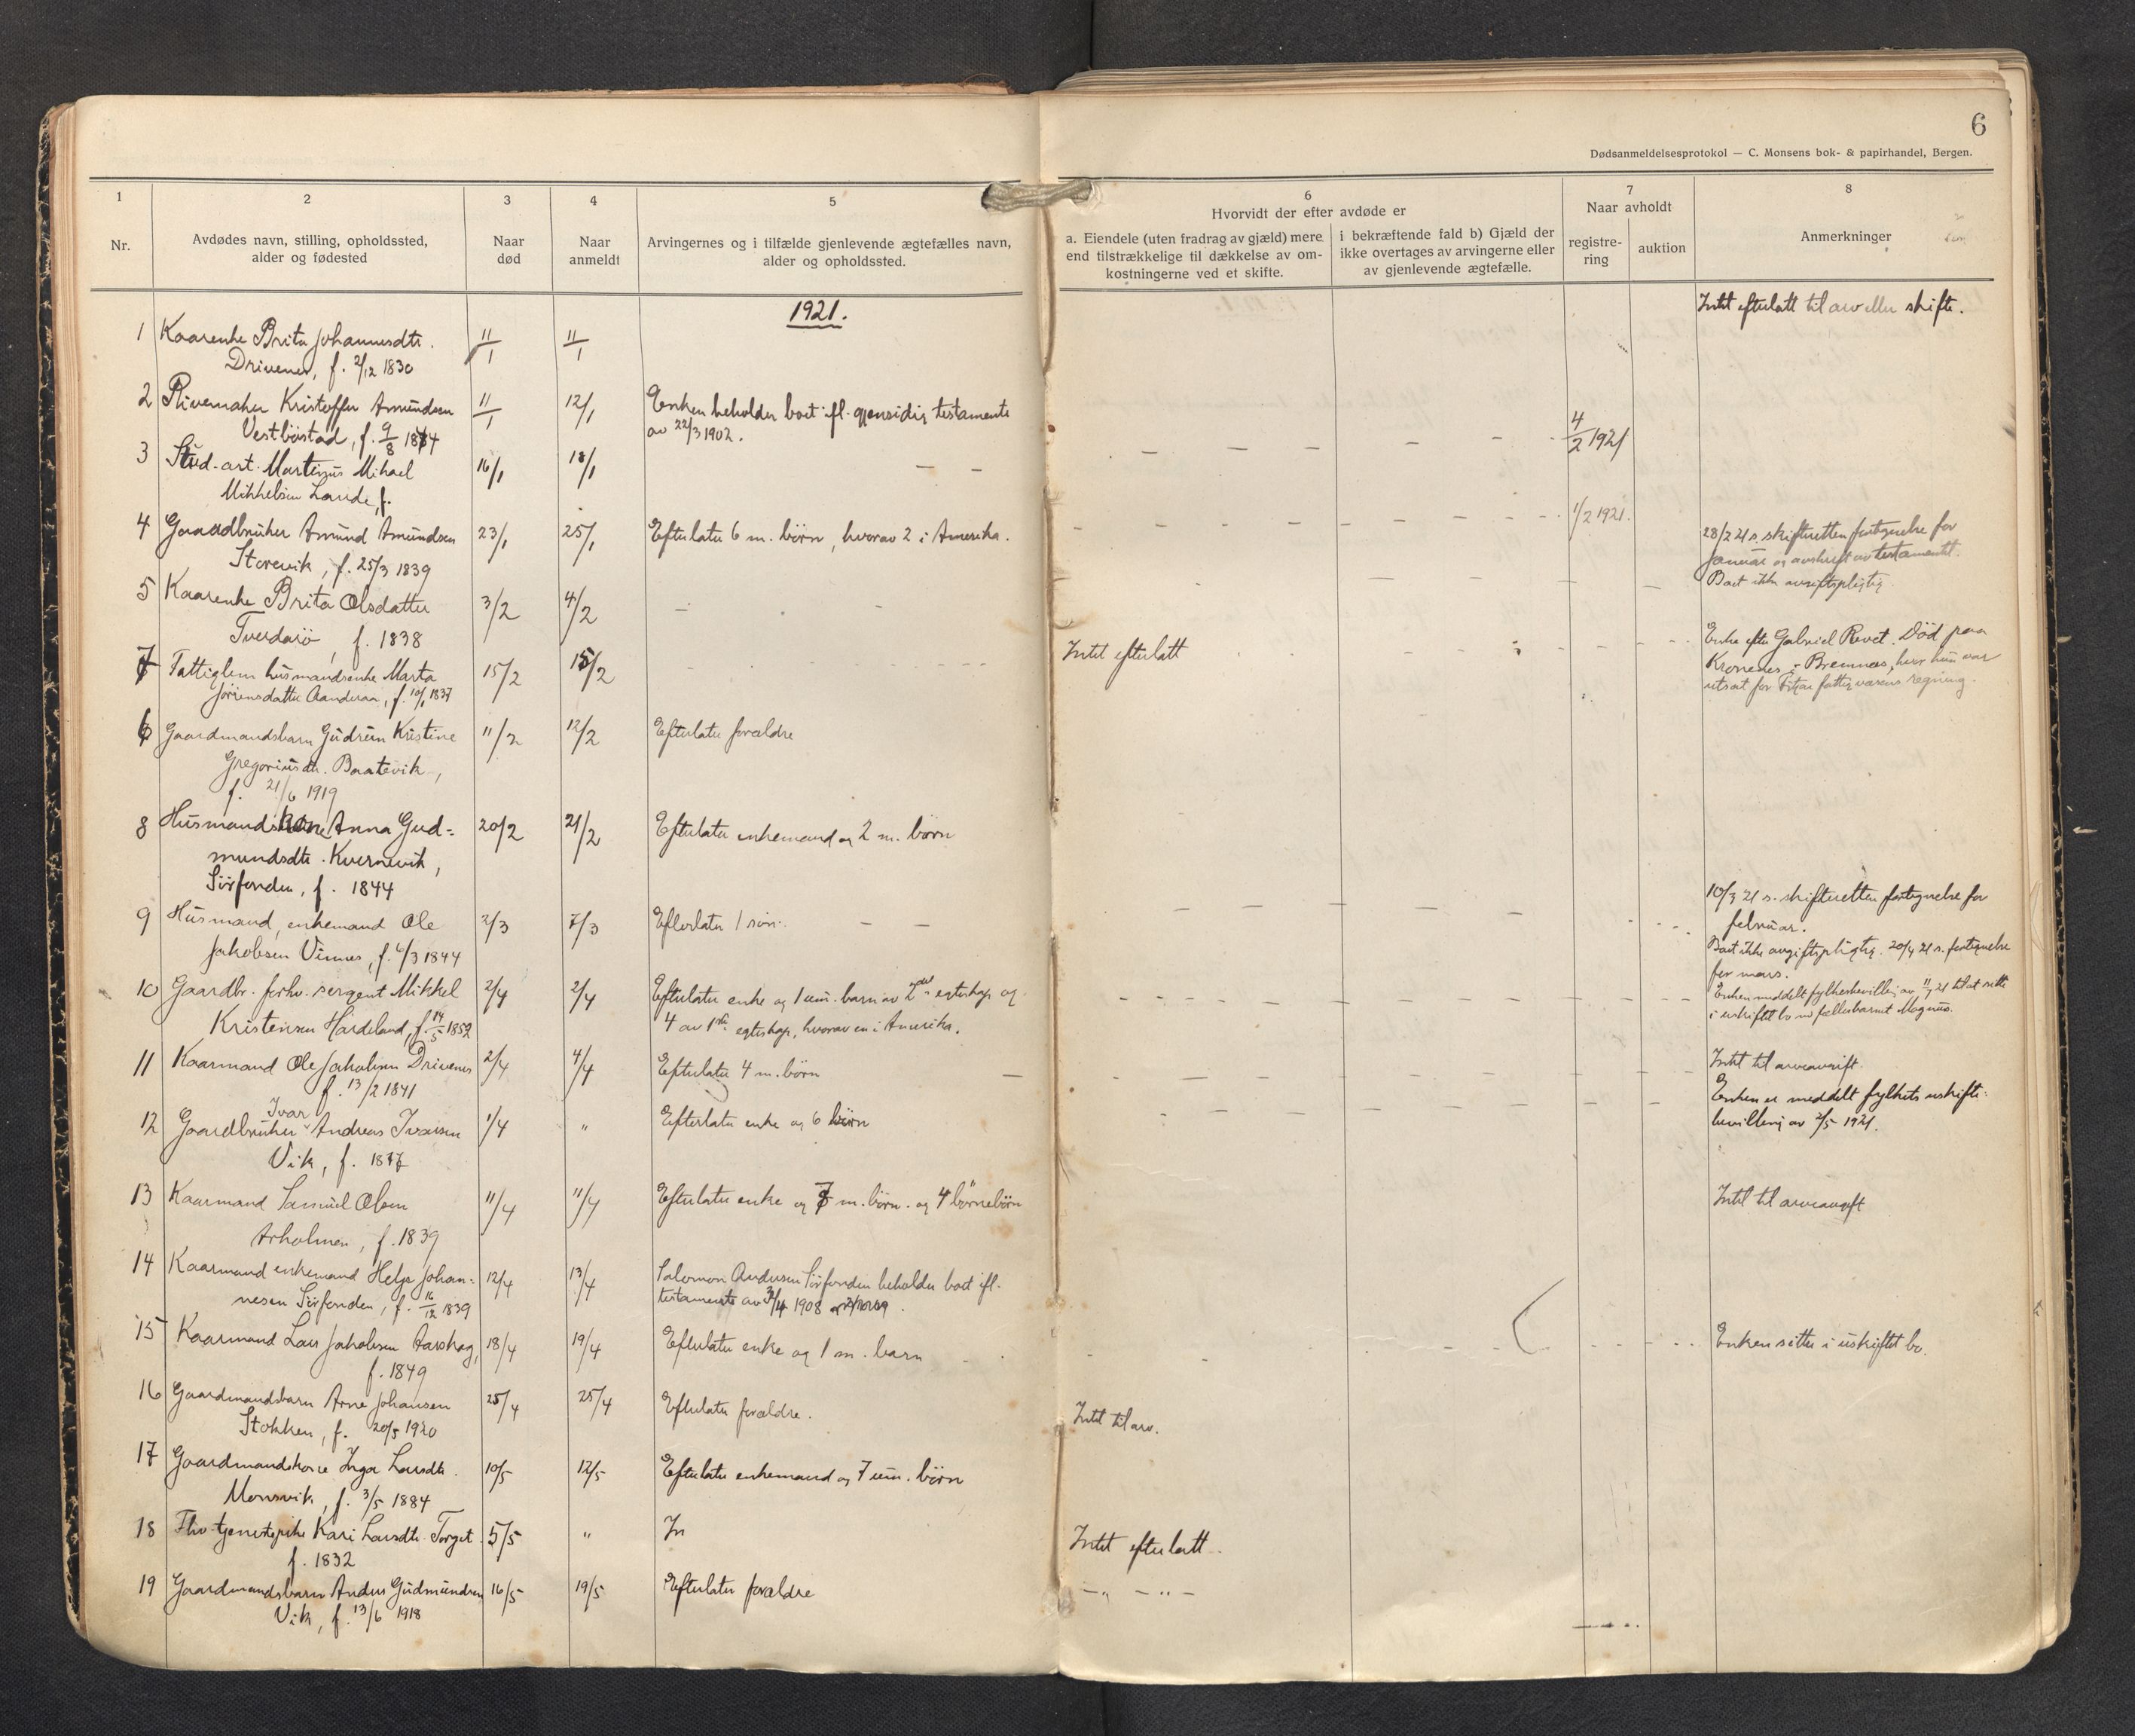 6
Dødsanmeldelsesprotokol — C. Monsens bok- & papirhandel, Bergen.
1
2
3
4
5
6
7
8
Nr.
Avdødes navn, stilling, opholdssted,
alder og fødested
Naar
død
Naar
anmeldt
Arvingernes og i tilfælde gjenlevende ægtefælles navn,
alder og opholdssted.
Hvorvidt der efter avdøde er
a. Eiendele (uten fradrag av gjæld) mere
end tilstrækkelige til dækkelse av om-
kostningerne ved et skifte.
i bekræftende fald b) Gjæld der
ikke overtages av arvingerne eller
av gjenlevende ægtefælle.
Naar avholdt
registre-
ring
auktion
Anmerkninger
1921.
1 Kaarenke Brita Johannesdtr. 11/1 11/1 Intet efterlatt til arv eller skifte.
Drivenes, f. 2/12 1830
2 Kristoffer Amundsen 11/1 12/1 Enken beholder boet ifl. gjensidig testamente
Vestbøstad, f. 9/8 1874 av 22/3 1902. 4/2 1921
3 Stud. art. Martinus Mikael 16/1 18/1 — —
Mikkelsen Lande, f.
4 Gaardbruker Amund Amundsen 23/1 25/1 Efterlater 6 m. börn, hvorav 2 i Amerika. 1/2 1921. 28/2 21 s. skifteretten fortegnelse for
Storevik, f. 25/3 1839 januar og avskrift av testamentet.
5 Kaarenke Brita Olsdatter 3/2 4/2 — Boet ikke avgiftspligtig
Tverdarö, f. 1838
7 Fattiglem husmandsenke Marta 15/2 15/2 Intet efterlatt Enke efter Gabriel Rivet. Död paa
Jörensdatter Aanderaa, f. 10/1 1837 Kronenes, Bremnes, hvor hun var
utsat for Fitjar fattigvæsens regning.
6 Gaardmandsbarn Gudrun Kristine 11/2 12/2 Efterlater forældre
Gregoriusdtr. Baatevik,
f. 21/6 1919
8 Husmandskone Anna Gud= 20/2 21/2 Efterlater enkemand og 2 m. börn
mundsdtr. Kvernevik,
Sörfonden, f. 1844
9 Husmand, enkemand Ole 2/3 7/3 Efterlater 1 sön. — — 10/3 21 s. skifteretten fortegnelse for
februar.
Jakobsen Vinnes, f. 6/3 1844 Boet ikke avgiftspligtig. 20/4 21 s. fortegnelse
for mars.
10 Gaardbr. forhv. sergent Mikkel 2/4 2/4 Efterlater enke og 1 um. barn av 2det egteskap og Enken meddelt fylkesbevilling av 11/7 21 til at sitte
Kristensen Hardeland, f. 14/5 1852 4 av 1ste egteskap, hvorav en i Amerika. i uskiftet bo m/ fællesbarnet Magnus.
11 Kaarmand Ole Jakobsen Drivenes 2/4 4/4 Efterlater 4 m. börn — Intet til arveavgift.
f. 13/2 1841
12 Gaardbruker Ivar Andreas Ivarsen 1/4 " Efterlater enke og 6 börn Enken er meddelt fylkets uskifte-
Vik, f. 1877 bevilling av 2/5 1921.
13 Kaarmand Samuel Olsen 11/4 11/4 Efterlater enke og 7 m. börn. og 4 börnebörn Intet til arveavgift
Arholmen, f. 1839
14 Kaarmand enkemand Helje Johan= 12/4 13/4 Salomon Andersen Sörfonden beholder boet ifl.
nesen Sörfonden, f. 16/12 1839 testamente av 1908
15 Kaarmand Lars Jakobsen Aarskog, 18/4 19/4 Efterlater enke og 1 m. barn Enken sitter i uskiftet bo.
f. 1849
16 Gaardmandsbarn Arne Johansen 25/4 25/4 Efterlater forældre. Intet til arv.
Stokken, f. 20/5 1920
17 Gaardmandskone Inga Larsdtr. 10/5 12/5 Efterlater enkemand og 7 um. börn
Monsvik, f. 3/5 1884
18 Fhv. tjenestepike Kari Larsdtr. Torget 5/5 " In Intet efterlatt.
f. 1832
19 Gaardmandsbarn Anders Gudmundsen 16/5 19/5 Efterlater forældre —"— —"—
Vik, f. 13/6 1918